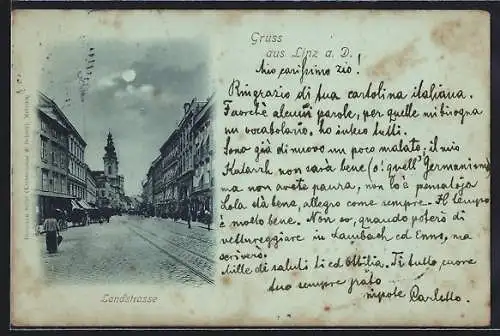 Gruss
aus Linz a. D.
Mio carissimo zio!
Ringrazio di tua cartolina italiana.
alcuni parole, per quelle mi bisogna
un vocabolario, ho inteso tutti.
Sono già di nuovo un poco malato; il mio
Katarrh non sarà bene (o! quell' Germanismo)
ma non avete paura, non
sta bene, allegro come sempre. Il tempo
è molto bene. Non so, quando poterò di
vettureggiare in Lambach ed Enns, ma
scriverò.
Mille di saluti ti ed Ottilia. Di tutto cuore
tuo sempre
nipote Carletto.
Landstrasse